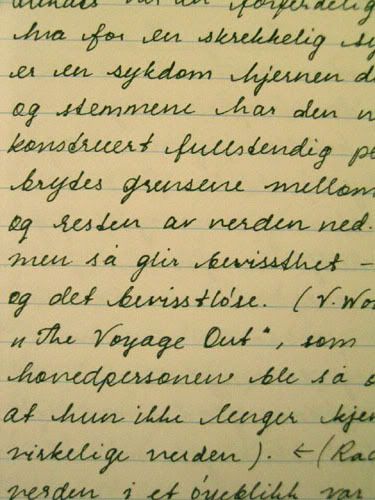 var en forferdelig
hva for en skrekkelig sy
er en sykdom hjernen
og stemmene har den
konstruert fullstendig
brytes grensene mellom
og resten av verden ned.
men så glir bevissthet –
og det bevisstløse. (V. Wo
"The Voyage Out", som
hovedpersonen ble så
at hun ikke lenger kjen
virkelige verden). ← (Rac
verden i et øyeblikk var